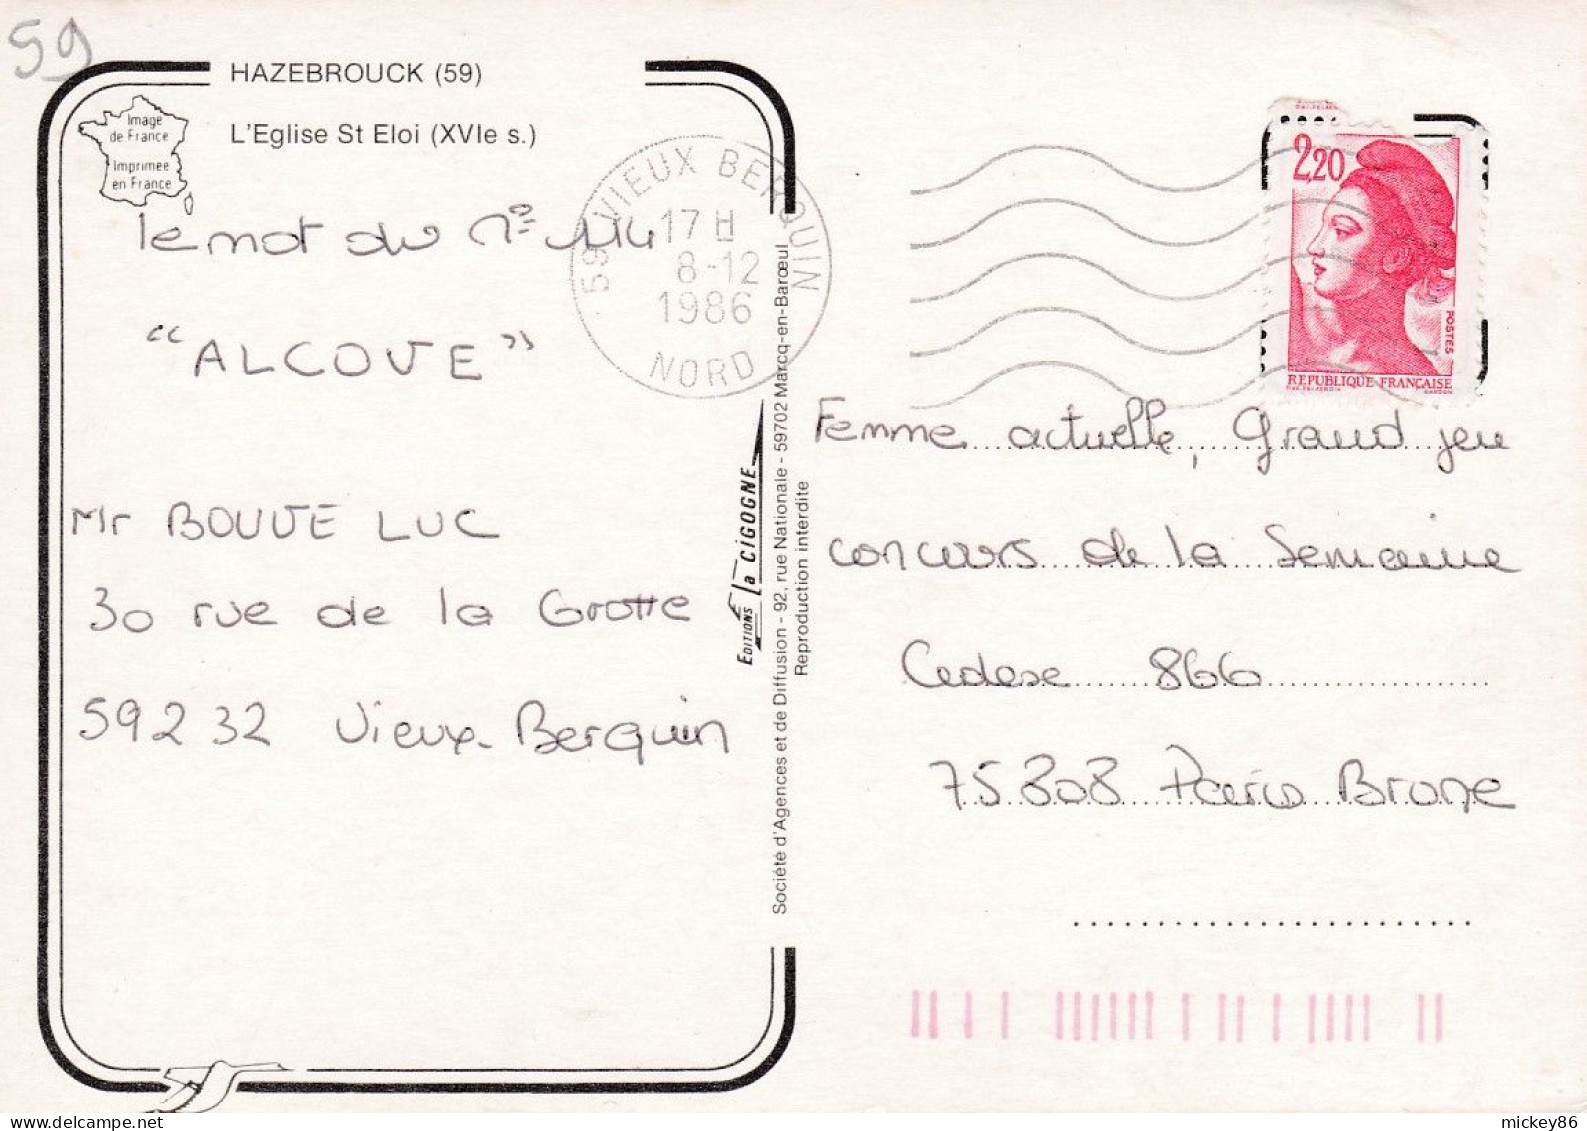 59
HAZEBROUCK (59)
L'Eglise St Eloi (XVIe s.)
Image
de France
Imprimée
en France
le mot du n° 114
"ALCOVE"
Mr BOUVE LUC
30 rue de la Grotte
59232 Vieux-Berquin
59 VIEUX BERQUIN
17 H
8-12
1986
NORD
EDITIONS La CIGOGNE
Société d'Agences et de Diffusion - 92, rue Nationale - 59702 Marcq-en-Barœul
Reproduction interdite
2,20
POSTES
REPUBLIQUE FRANÇAISE
Femme actuelle, Grand jeu
concours de la Semaine
Cedexe 866
75808 Paris Brune
mickey86